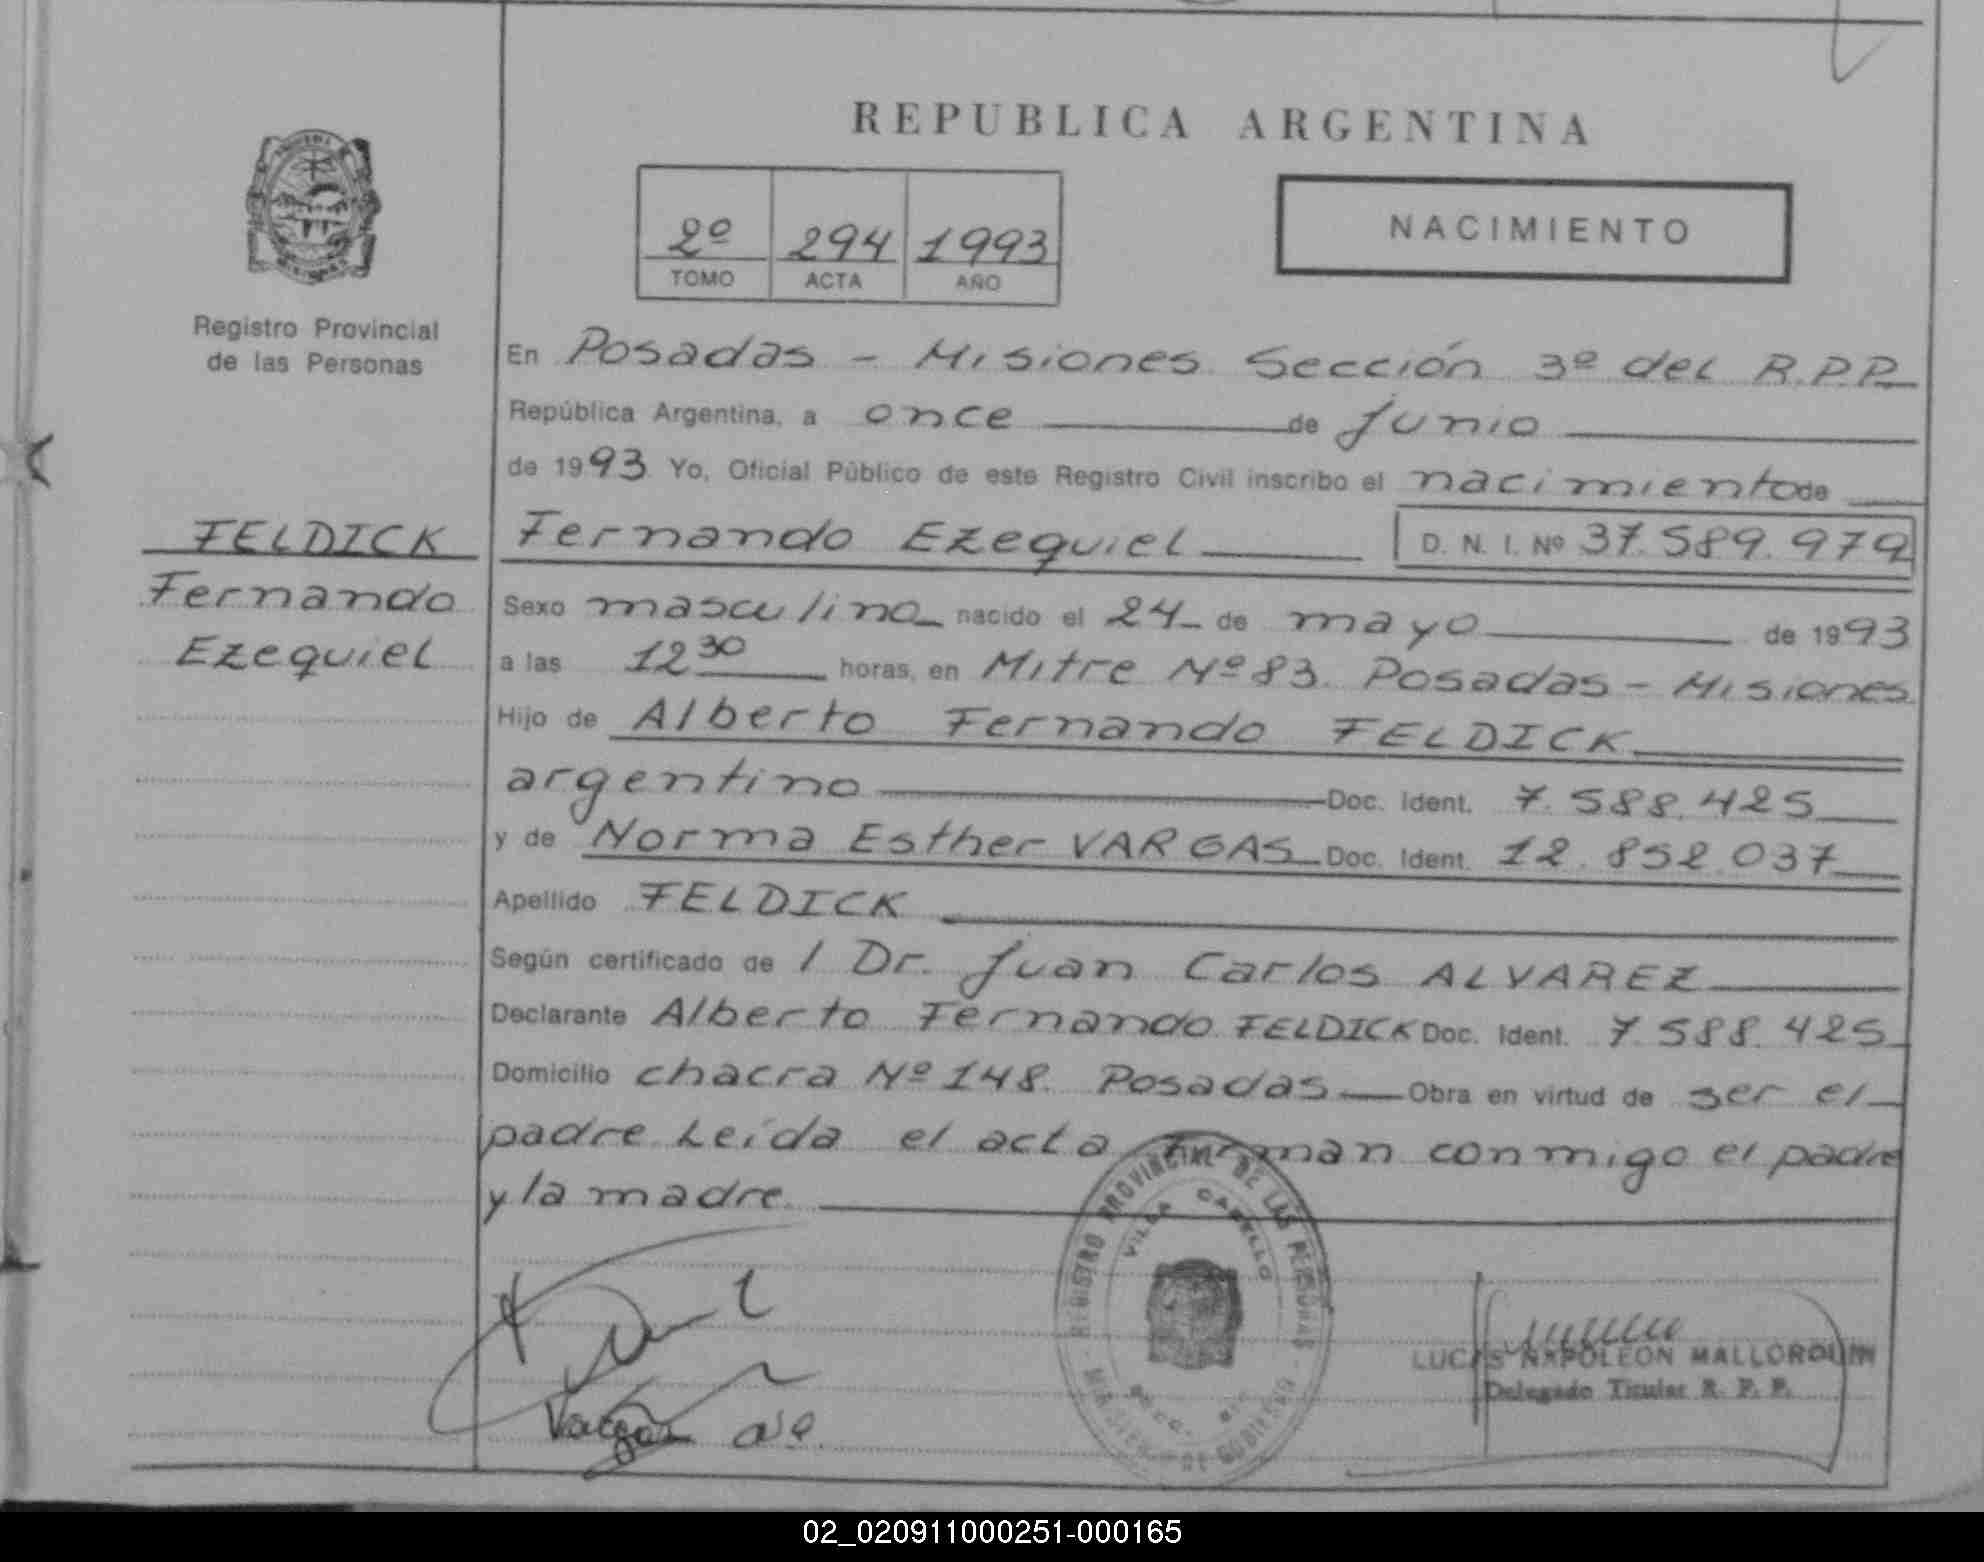 REPUBLICA ARGENTINA
2º 294 1993
TOMO ACTA AÑO
NACIMIENTO
Registro Provincial
de las Personas
FELDICK
Fernando
Ezequiel
En Posadas - Misiones Sección 3º del R.P.P.
República Argentina, a once de Junio
de 1993 Yo, Oficial Público de este Registro Civil inscribo el nacimiento de
Fernando Ezequiel D. N. I. Nº 37.589.979
Sexo masculino nacido el 24 de mayo de 1993
a las 12 30 horas, en Mitre Nº 83. Posadas - Misiones
Hijo de Alberto Fernando FELDICK
argentino Doc. Ident. 7.588.425
y de Norma Esther VARGAS Doc. Ident. 12.852.037
Apellido FELDICK
Según certificado de l Dr. Juan Carlos ALVAREZ
Declarante Alberto Fernando FELDICK Doc. Ident. 7.588.425
Domicilio chacra Nº 148. Posadas Obra en virtud de ser el
padre. Leída el acta firman conmigo el padre
y la madre.
REGISTRO PROVINCIAL DE LAS PERSONAS
VILLA CABELLO
MINISTERIO DE GOBIERNO
LUCAS NAPOLEON MALLORQUIN
Delegado Titular R. P. P.
02_020911000251-000165